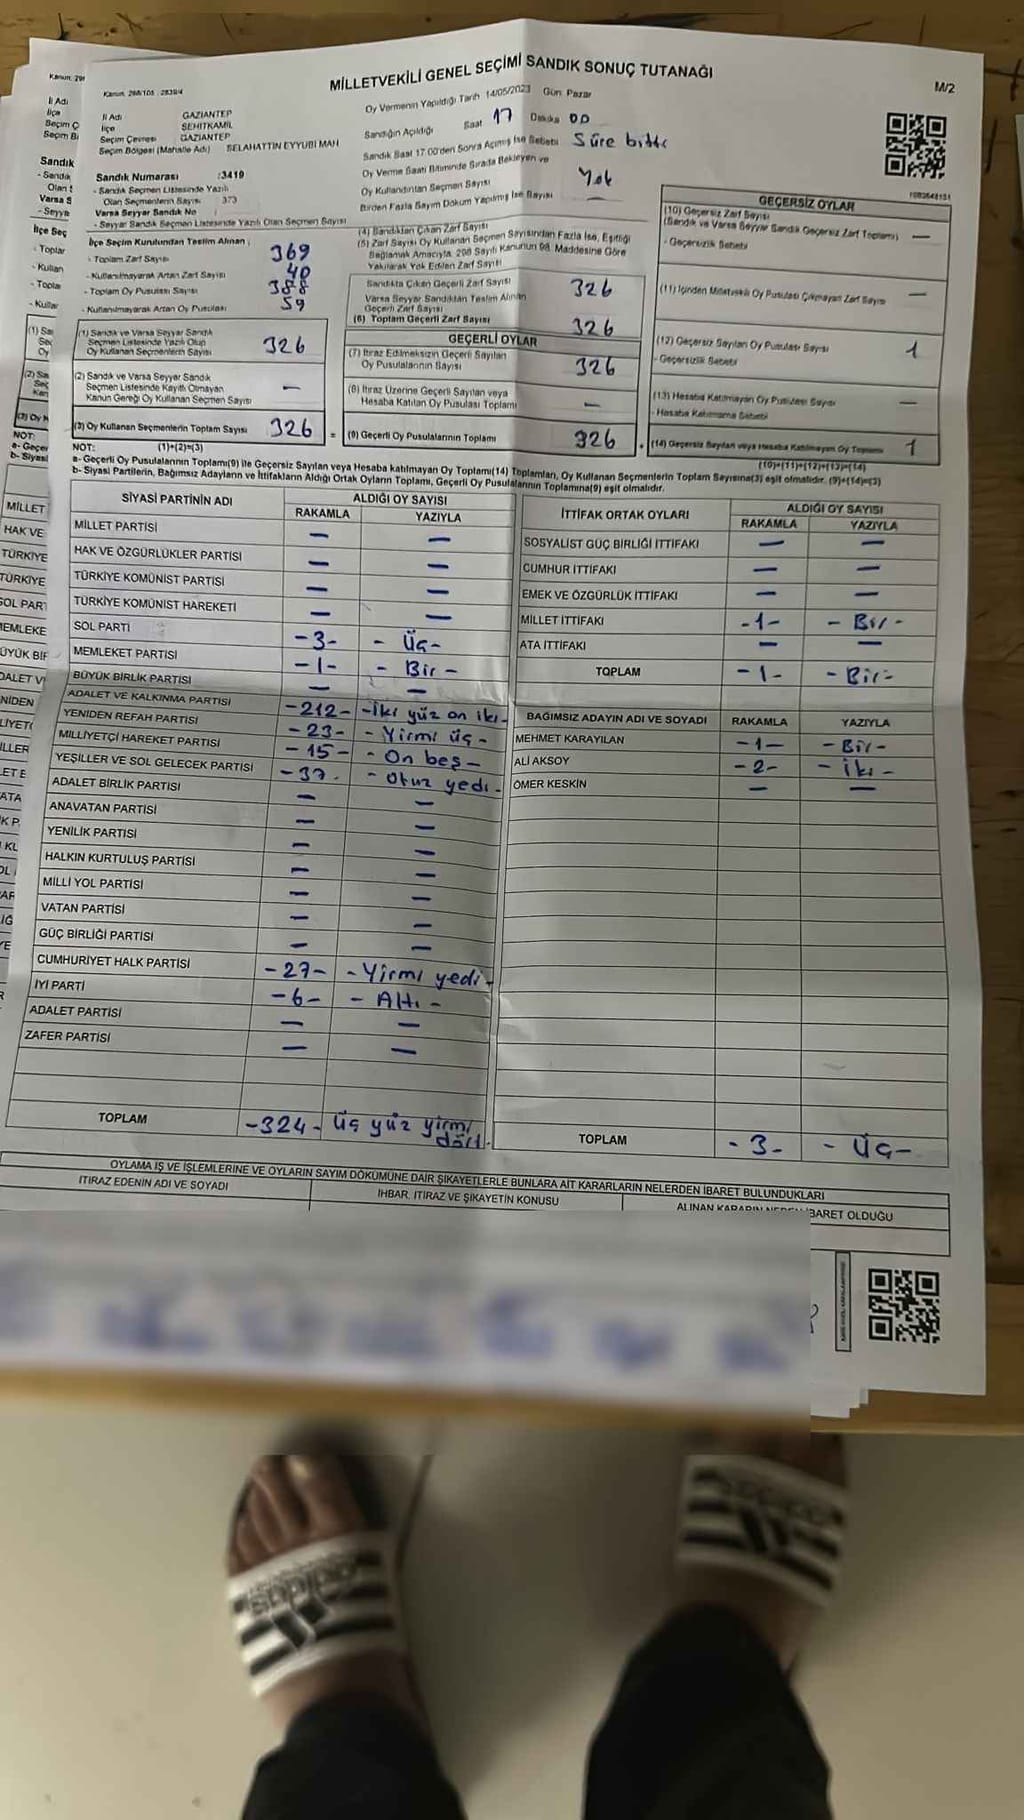 MİLLETVEKİLİ GENEL SEÇİMİ SANDIK SONUÇ TUTANAĞI
M/2
Kanun: 298/105 : 2839/4
Oy Vermenin Yapıldığı Tarih 14/05/2023 Gün: Pazar
İl Adı GAZİANTEP
İlçe ŞEHİTKAMİL
Seçim Çevresi GAZİANTEP
Seçim Bölgesi (Mahalle Adı) SELAHATTİN EYYUBİ MAH
Sandığın Açıldığı Saat 17 Dakika 00
Sandık Saat 17.00'den Sonra Açılmış İse Sebebi Süre bitti
Oy Verme Saati Bitiminde Sırada Bekleyen ve
Oy Kullandırılan Seçmen Sayısı Yok
Birden Fazla Sayım Döküm Yapılmış İse Sayısı —
Sandık Numarası :3419
- Sandık Seçmen Listesinde Yazılı
Olan Seçmenlerin Sayısı 373
Varsa Seyyar Sandık No
- Seyyar Sandık Seçmen Listesinde Yazılı Olan Seçmen Sayısı
İlçe Seçim Kurulundan Teslim Alınan ;
- Toplam Zarf Sayısı 369
- Kullanılmayarak Artan Zarf Sayısı 40
- Toplam Oy Pusulası Sayısı 388
- Kullanılmayarak Artan Oy Pusulası 59
(1) Sandık ve Varsa Seyyar Sandık
Seçmen Listesinde Yazılı Olup
Oy Kullanan Seçmenlerin Sayısı 326
(2) Sandık ve Varsa Seyyar Sandık
Seçmen Listesinde Kayıtlı Olmayan
Kanun Gereği Oy Kullanan Seçmen Sayısı —
(3) Oy Kullanan Seçmenlerin Toplam Sayısı 326
(4) Sandıktan Çıkan Zarf Sayısı
(5) Zarf Sayısı Oy Kullanan Seçmen Sayısından Fazla İse, Eşitliği
Sağlamak Amacıyla, 298 Sayılı Kanunun 98. Maddesine Göre
Yakılarak Yok Edilen Zarf Sayısı
Sandıkta Çıkan Geçerli Zarf Sayısı 326
Varsa Seyyar Sandıktan Teslim Alınan
Geçerli Zarf Sayısı
(6) Toplam Geçerli Zarf Sayısı 326
GEÇERLİ OYLAR
(7) İtiraz Edilmeksizin Geçerli Sayılan
Oy Pusulalarının Sayısı 326
(8) İtiraz Üzerine Geçerli Sayılan veya
Hesaba Katılan Oy Pusulası Toplamı —
= (9) Geçerli Oy Pusulalarının Toplamı 326
GEÇERSİZ OYLAR
(10) Geçersiz Zarf Sayısı
(Sandık ve Varsa Seyyar Sandık Geçersiz Zarf Toplamı) —
- Geçersizlik Sebebi
(11) İçinden Milletvekili Oy Pusulası Çıkmayan Zarf Sayısı —
(12) Geçersiz Sayılan Oy Pusulası Sayısı 1
- Geçersizlik Sebebi
(13) Hesaba Katılmayan Oy Pusulası Sayısı —
- Hesaba Katılmama Sebebi
+ (14) Geçersiz Sayılan veya Hesaba Katılmayan Oy Toplamı 1
NOT: (1)+(2)=(3)
(10)+(11)+(12)+(13)=(14)
a- Geçerli Oy Pusulalarının Toplamı(9) ile Geçersiz Sayılan veya Hesaba katılmayan Oy Toplamı(14) Toplamları, Oy Kullanan Seçmenlerin Toplam Sayısına(3) eşit olmalıdır. (9)+(14)=(3)
b- Siyasi Partilerin, Bağımsız Adayların ve İttifakların Aldığı Ortak Oyların Toplamı, Geçerli Oy Pusulalarının Toplamına(9) eşit olmalıdır.
SİYASİ PARTİNİN ADI ALDIĞI OY SAYISI
RAKAMLA YAZIYLA
MİLLET PARTİSİ — —
HAK VE ÖZGÜRLÜKLER PARTİSİ — —
TÜRKİYE KOMÜNİST PARTİSİ — —
TÜRKİYE KOMÜNİST HAREKETİ — —
SOL PARTİ -3- - Üç-
MEMLEKET PARTİSİ -1- - Bir -
BÜYÜK BİRLİK PARTİSİ — —
ADALET VE KALKINMA PARTİSİ -212- -İki yüz on iki-
YENİDEN REFAH PARTİSİ -23- - Yirmi üç -
MİLLİYETÇİ HAREKET PARTİSİ -15- - On beş -
YEŞİLLER VE SOL GELECEK PARTİSİ -37. - Otuz yedi -
ADALET BİRLİK PARTİSİ — —
ANAVATAN PARTİSİ — —
YENİLİK PARTİSİ — —
HALKIN KURTULUŞ PARTİSİ — —
MİLLİ YOL PARTİSİ — —
VATAN PARTİSİ — —
GÜÇ BİRLİĞİ PARTİSİ — —
CUMHURİYET HALK PARTİSİ -27- - Yirmi yedi -
İYİ PARTİ -6- - Altı -
ADALET PARTİSİ — —
ZAFER PARTİSİ — —
TOPLAM -324- üç yüz yirmi
dört.
İTTİFAK ORTAK OYLARI ALDIĞI OY SAYISI
RAKAMLA YAZIYLA
SOSYALİST GÜÇ BİRLİĞİ İTTİFAKI — —
CUMHUR İTTİFAKI — —
EMEK VE ÖZGÜRLÜK İTTİFAKI — —
MİLLET İTTİFAKI -1- - Bir -
ATA İTTİFAKI — —
TOPLAM -1- - Bir-
BAĞIMSIZ ADAYIN ADI VE SOYADI RAKAMLA YAZIYLA
MEHMET KARAYILAN -1- - Bir -
ALİ AKSOY -2- - İki -
ÖMER KESKİN — —
TOPLAM - 3- - Üç-
OYLAMA İŞ VE İŞLEMLERİNE VE OYLARIN SAYIM DÖKÜMÜNE DAİR ŞİKAYETLERLE BUNLARA AİT KARARLARIN NELERDEN İBARET BULUNDUKLARI
İTİRAZ EDENİN ADI VE SOYADI
İHBAR, İTİRAZ VE ŞİKAYETİN KONUSU
ALINAN KARARIN NEDEN İBARET OLDUĞU
adidas
adidas